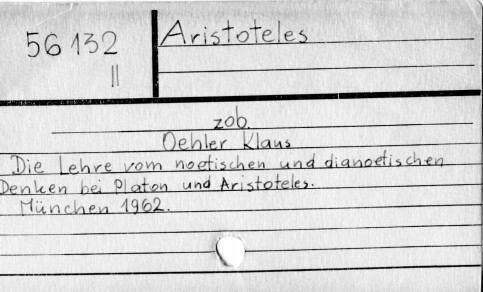 56132
II
Aristoteles
zob.
Oehler Klaus
Die Lehre vom noetischen und dianoetischen
Denken bei Platon und Aristoteles.
München 1962.